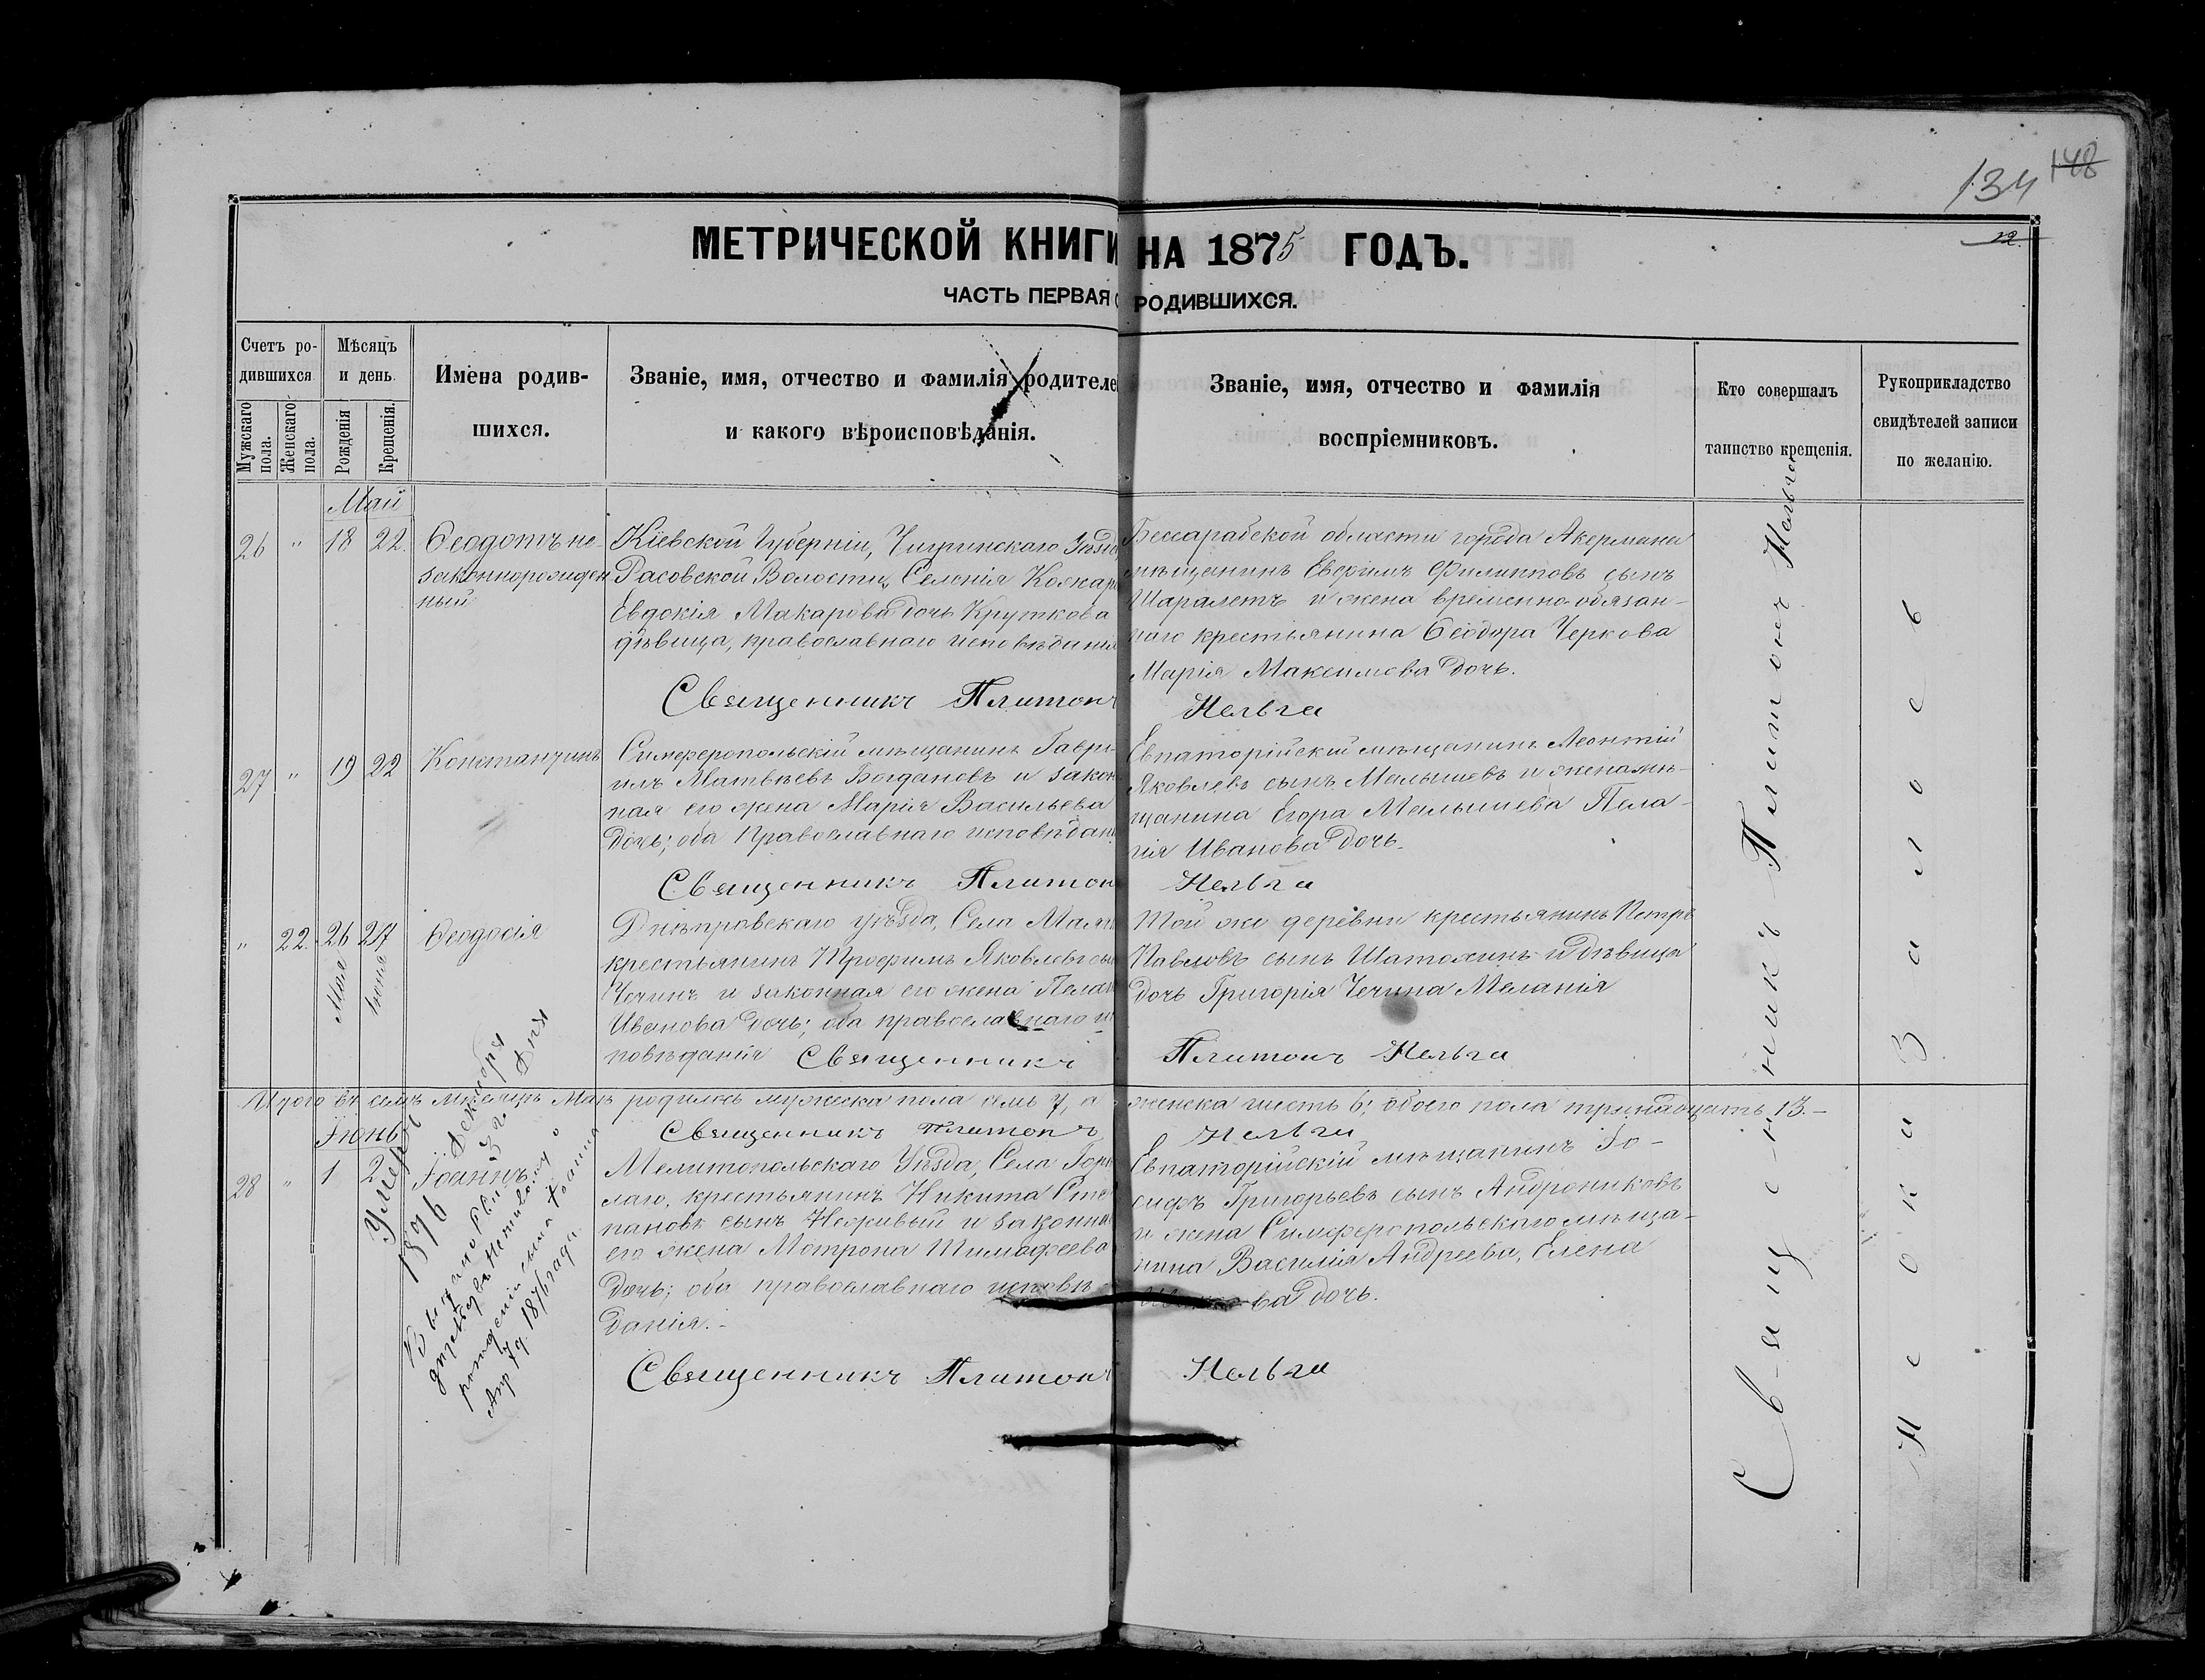 134 148
22.
МЕТРИЧЕСКОЙ КНИГИ НА 1875 ГОДЪ.
ЧАСТЬ ПЕРВАЯ О РОДИВШИХСЯ.
Счетъ ро-
дившихся
Мужскаго пола.
Женскаго пола.
Мѣсяцъ
и день.
Рожденія
Крещенія.
Имена родив-
шихся.
Званіе, имя, отчество и фамилія родителе
и какого вѣроисповѣданія.
Званіе, имя, отчество и фамилія
воспріемниковъ.
Кто совершалъ
таинство крещенія.
Рукоприкладство
свидѣтелей записи
по желанію.
Май
26 " 18 22.
Ѳеодотъ не-
законнорожден
ный
Кіевской Губерніи, Чигринскаго Уѣзда
Расовской Волости, Селенія
Евдокія Макарова дочь Круткова
дѣвица, православнаго исповѣданія
Священникъ Платонъ
Бессарабской области города Акермана
мѣщанинъ Евфимъ Филипповъ сынъ
Шаралетъ и жена временно-обязан-
наго крестьянина Ѳеодора Черкова
Марія Максимова дочь.
27 " 19 22
Константинъ
Симферопольскій мѣщанинъ Гаври-
илъ Матвѣевъ Богдановъ и закон
ная его жена Марія Васильева
дочь; оба Православнаго исповѣдан
Священникъ Платон
Евпаторійскій мѣщанинъ Леонтій
Яковлевъ сынъ Малышевъ и жена мѣ-
щанина Егора Малышева Пела-
гія Иванова дочь.
" 22 26 27
Мая
Ѳеодосія
Днѣпровскаго уѣзда, Села
крестьянинъ Трофимъ Яковлевъ сы
Чечинъ и законная его жена Пелаг
Иванова дочь; оба православнаго и
повѣданія Священникъ
Той же деревни крестьянинъ Петръ
Павловъ сынъ Шатохинъ и дѣвица
дочь Григорія Чечина Меланія
Платонъ
Итого въ семъ мѣсяцѣ Маѣ родилось мужеска пола семь 7, а женска шесть 6; обоего пола тринадцать 13.-
Священникъ Платонъ
Іюнь
28 " 1 2
Іоаннъ
Умеръ
1876 Декабря
3го дня
Мелитопольскаго Уѣзда, Села
крестьянинъ Никита Сте
пановъ сынъ Неживый и законна
его жена Матрона Тимофеева
дочь; оба православнаго исповѣ
данія.-
Священникъ Платонъ
Евпаторійскій мѣщанинъ Іо-
сифъ Григорьевъ сынъ Андрониковъ
и жена Симферопольскаго мѣща-
нина Василія Андреева, Елена
дочь.
рожденіи сына Іоанна
Апр 7 д. 1876 года.
Священникъ Платонъ